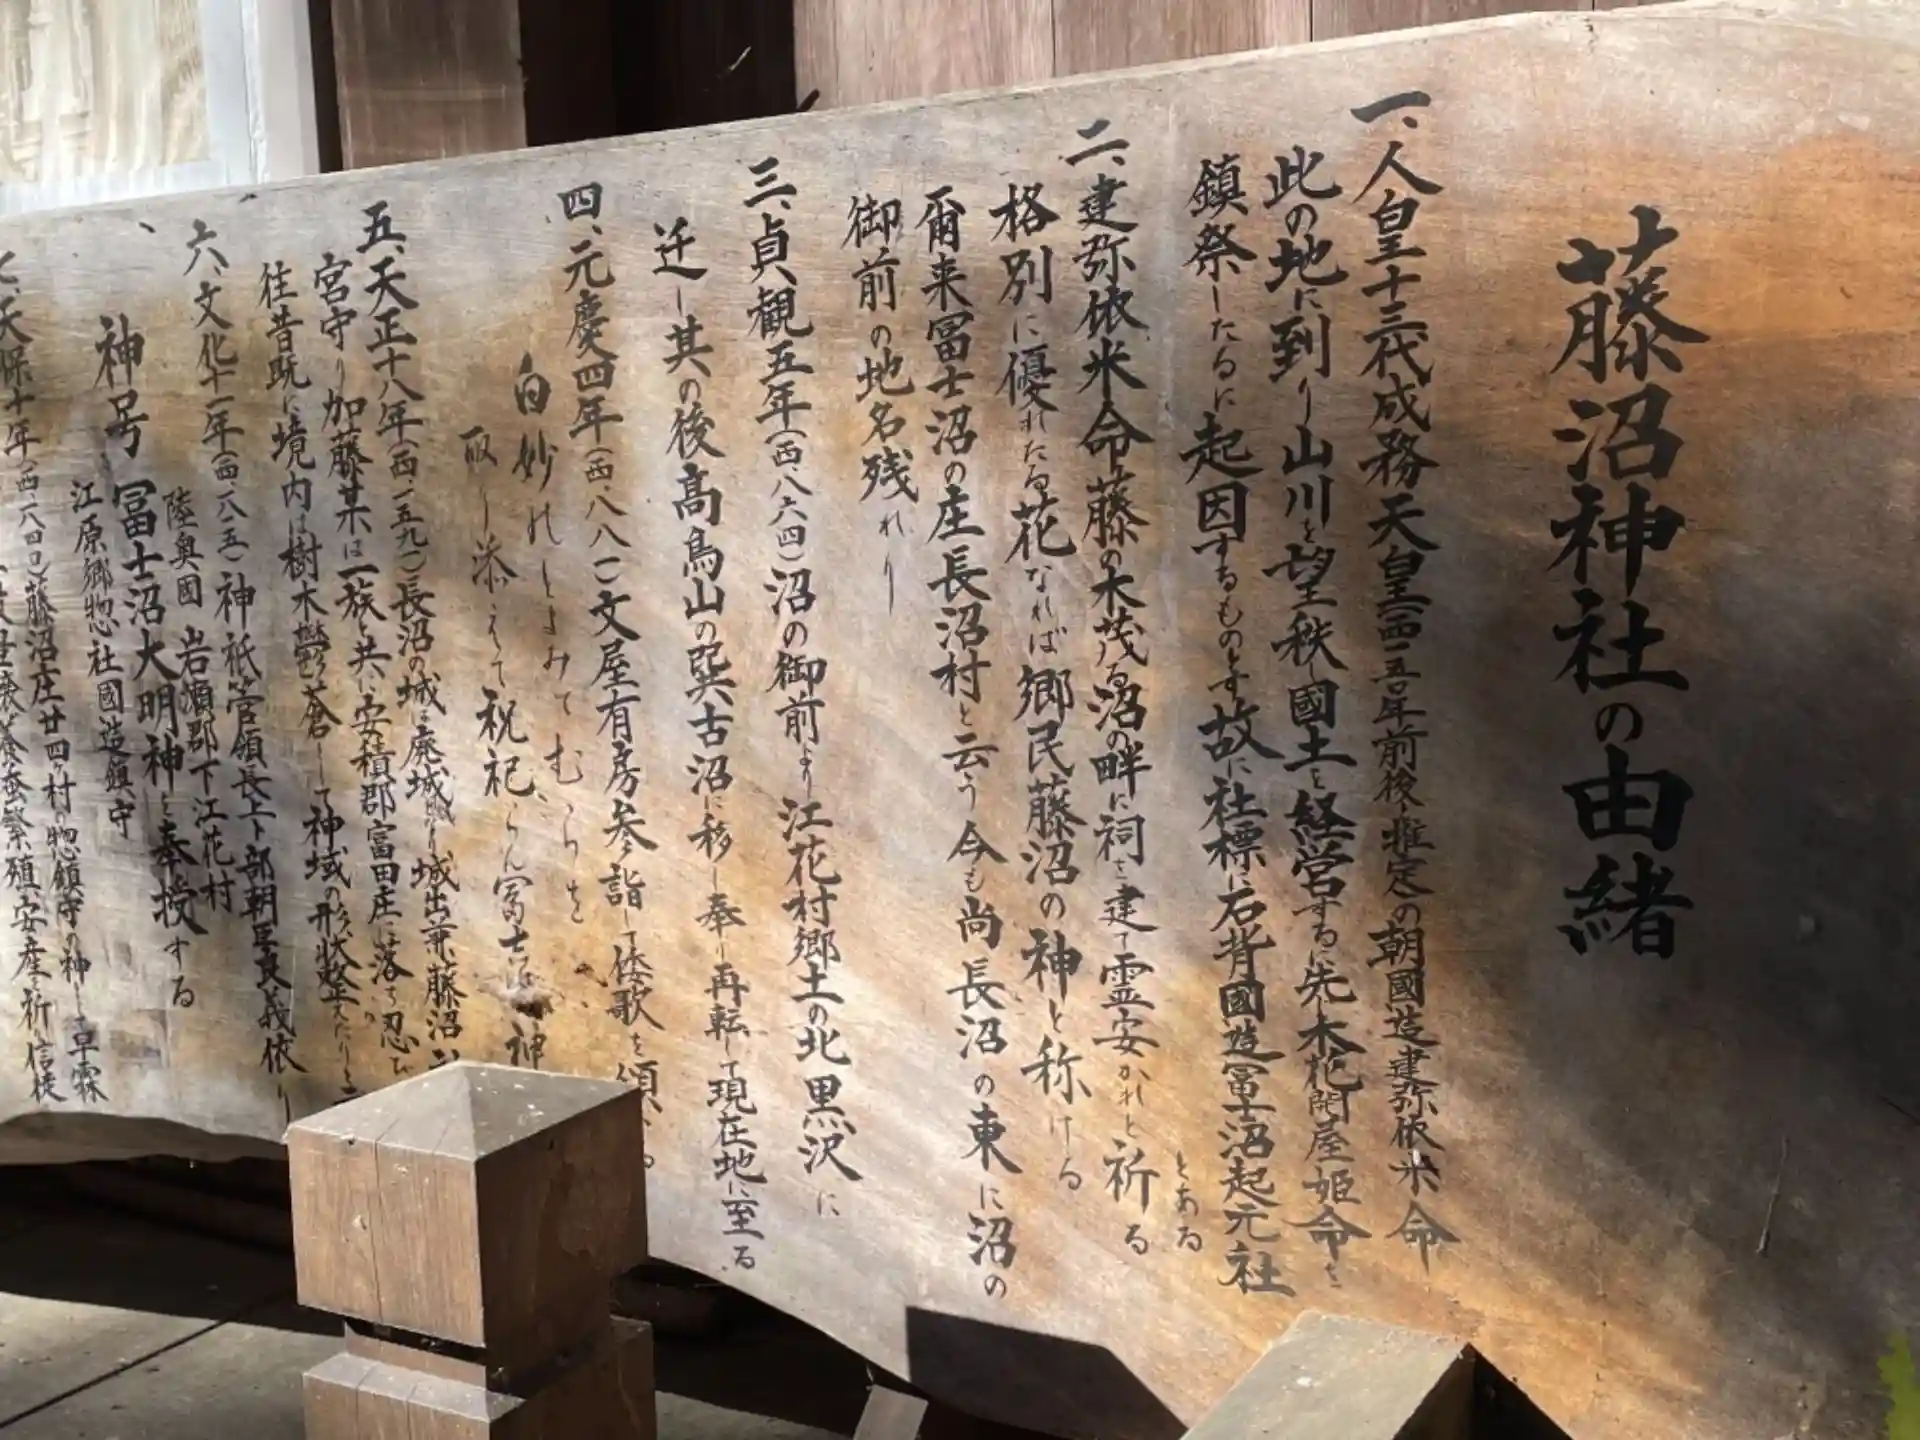 藤沼神社の由緒
一、人皇十三代成務天皇(西一五〇年前後と推定)の朝國造建弥依米命
此の地に到り山川を望秩し國土を経営するに先し木花開屋姫命を
鎮祭したるに起因するものとす故に社標に石背國造冨士沼起元社
とある
二、建弥依米命藤の木茂る沼の畔に祠を建て霊安かれと祈る
格別に優れたる花なれば郷民藤沼の神と称ける
爾来冨士沼の庄長沼村と云う今も尚長沼の東に沼の
御前の地名残れり
三、貞観五年(西、八六四)沼の御前より江花村郷土の北黒沢に
迁し其の後高鳥山の巽古沼に移し奉り再転して現在地に至る
四、元慶四年(西、八八一)文屋有房参詣して倭歌を頌
白妙のしよみて むらさを
取し添えて祝祀らん冨士沼 神
五、天正十八年(西、一五九一)長沼の城は廃城城出兼藤沼
宮守り加藤某は一族と共に安積郡富田庄に落ち忍び
往昔既に境内は樹木鬱蒼して神域の形状整えたりと
六、文化十一年(西、八一五)神祇管領長上卜部朝臣良義依り
陸奥國 岩瀬郡下江花村
神号 冨士沼大明神と奉授する
江原郷惣社國造鎮守
天保十年(西、一八四〇)藤沼庄廿四ヶ村の惣鎮守の神 旱霖
養蚕繁殖、安産を祈 信徒